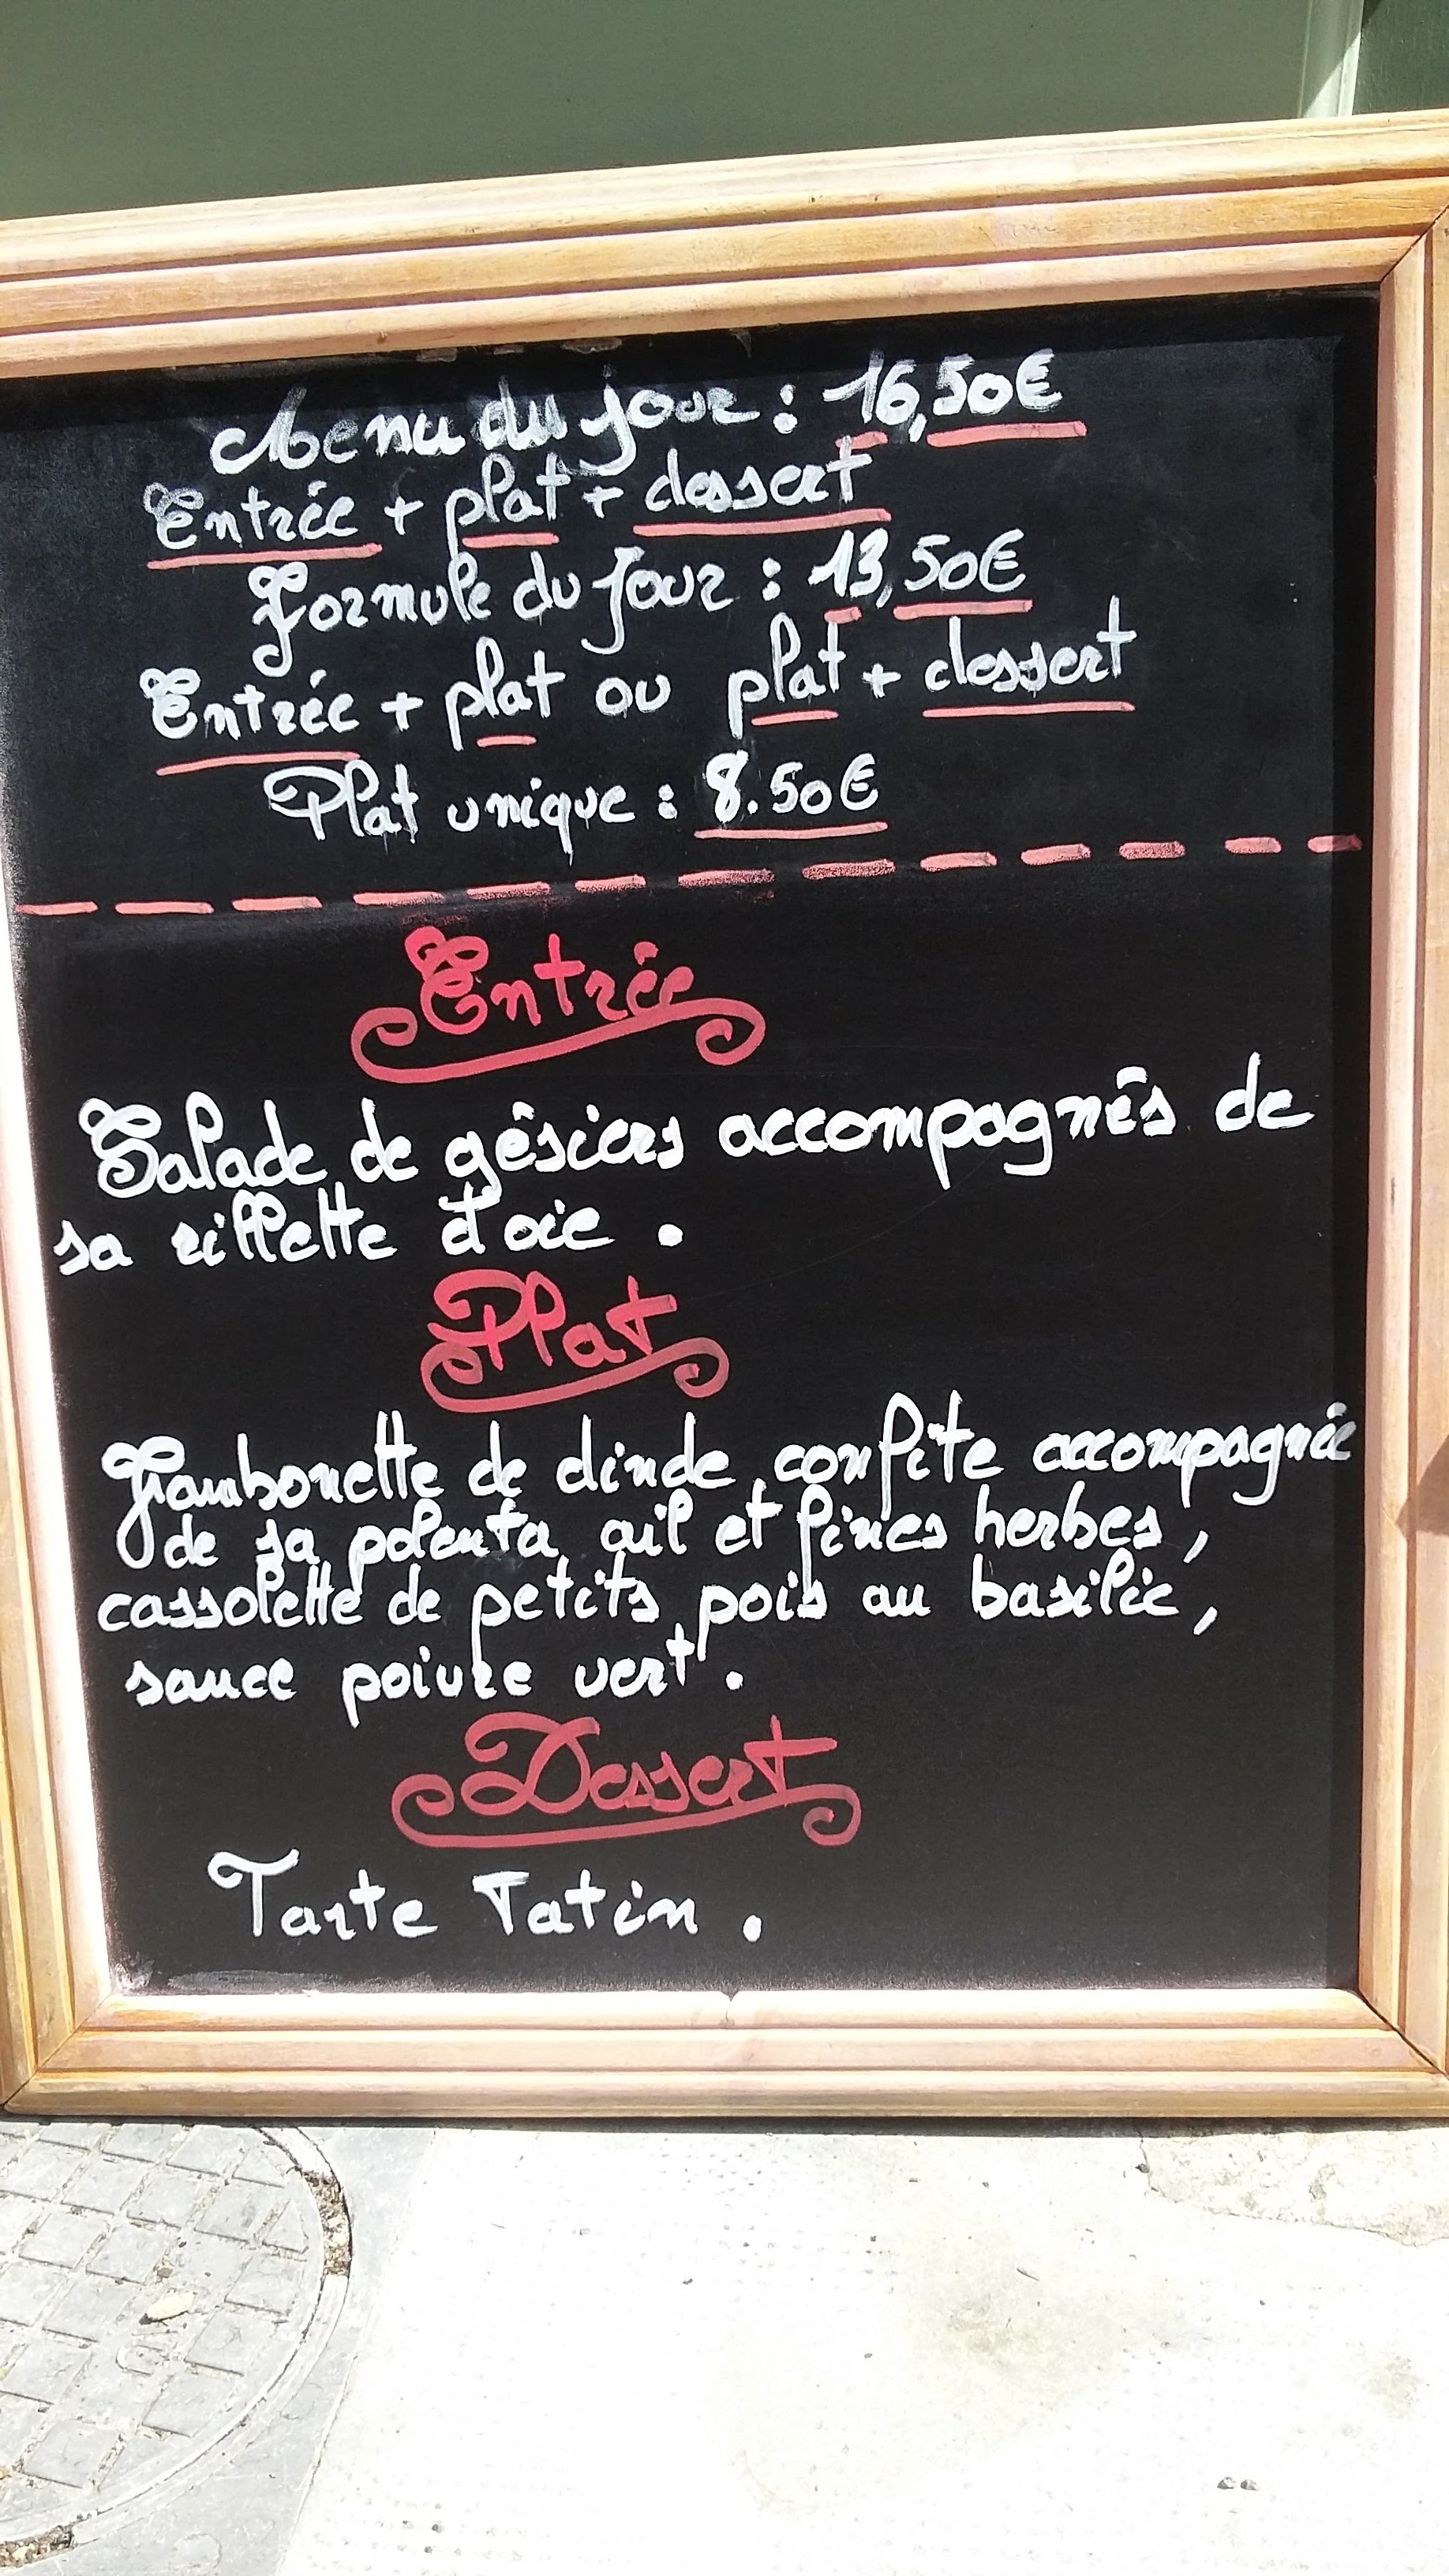 Menu du jour : 16,50€
Entrée + plat + dessert
Formule du jour : 13,50€
Entrée + plat ou plat + dessert
Plat unique : 8.50€
Entrée
Salade de gésiers accompagnés de
sa rillette d'oie .
Plat
Jambonette de dinde confite accompagnée
de sa polenta ail et fines herbes ,
cassolette de petits pois au basilic ,
sauce poivre vert .
Dessert
Tarte Tatin .